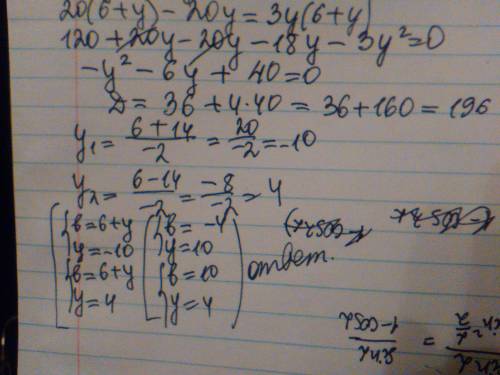 20(6+y)-20y=3y(6+y)
120+20y-20y-18y-3y²=0
-y²-6y+40=0
D=36+4·40=36+160=196
y₁=(6+14)/-2=20/-2=-10
y₂=(6-14)/-2=-8/-2=4
{в=6+y {в=-4
{y=-10 {y=10
{в=6+y {в=10
{y=4 {y=4
ответ.